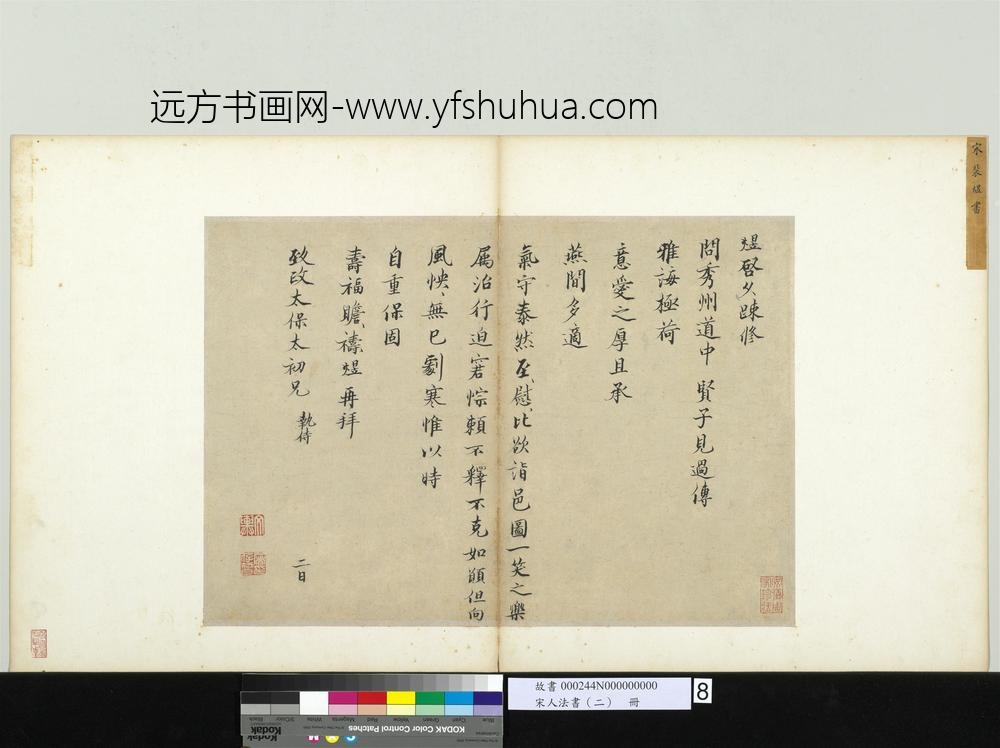 远方书画网-www.yfshuhua.com
宋裴煜書
煜啓久疎修
問秀州道中 賢子見過傳
雅誨極荷
意愛之厚且承
燕閒多適
氣守泰然至慰比欲詣邑圖一笑之樂
属治行迫窘悰賴不釋不克如願但向
風怏怏無已劇寒惟以時
自重保固
壽福瞻禱煜再拜
致政太保太初兄 執侍
二日
故書 000244N000000000
宋人法書（二） 冊
8
KODAK Color Control Patches
Blue Cyan Green Yellow Red Magenta White 3/Color Black
Kodak